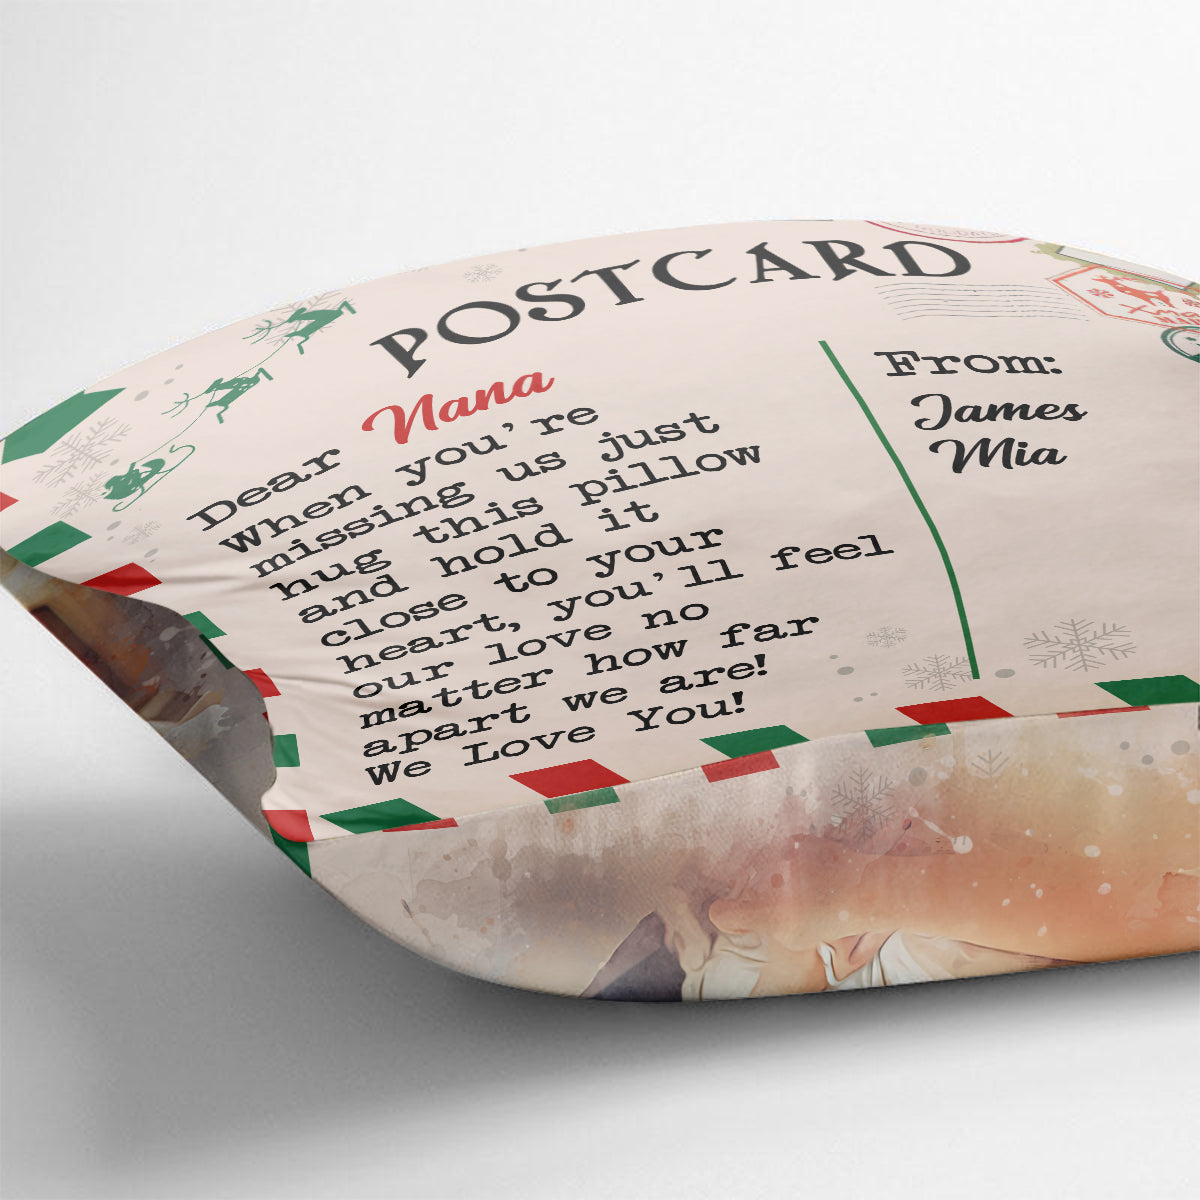 POSTCARD
Dear Nana
When you're
missing us just
hug this pillow
and hold it
close to your
heart, you'll feel
our love no
matter how far
apart we are!
We Love You!
From:
James
Mia